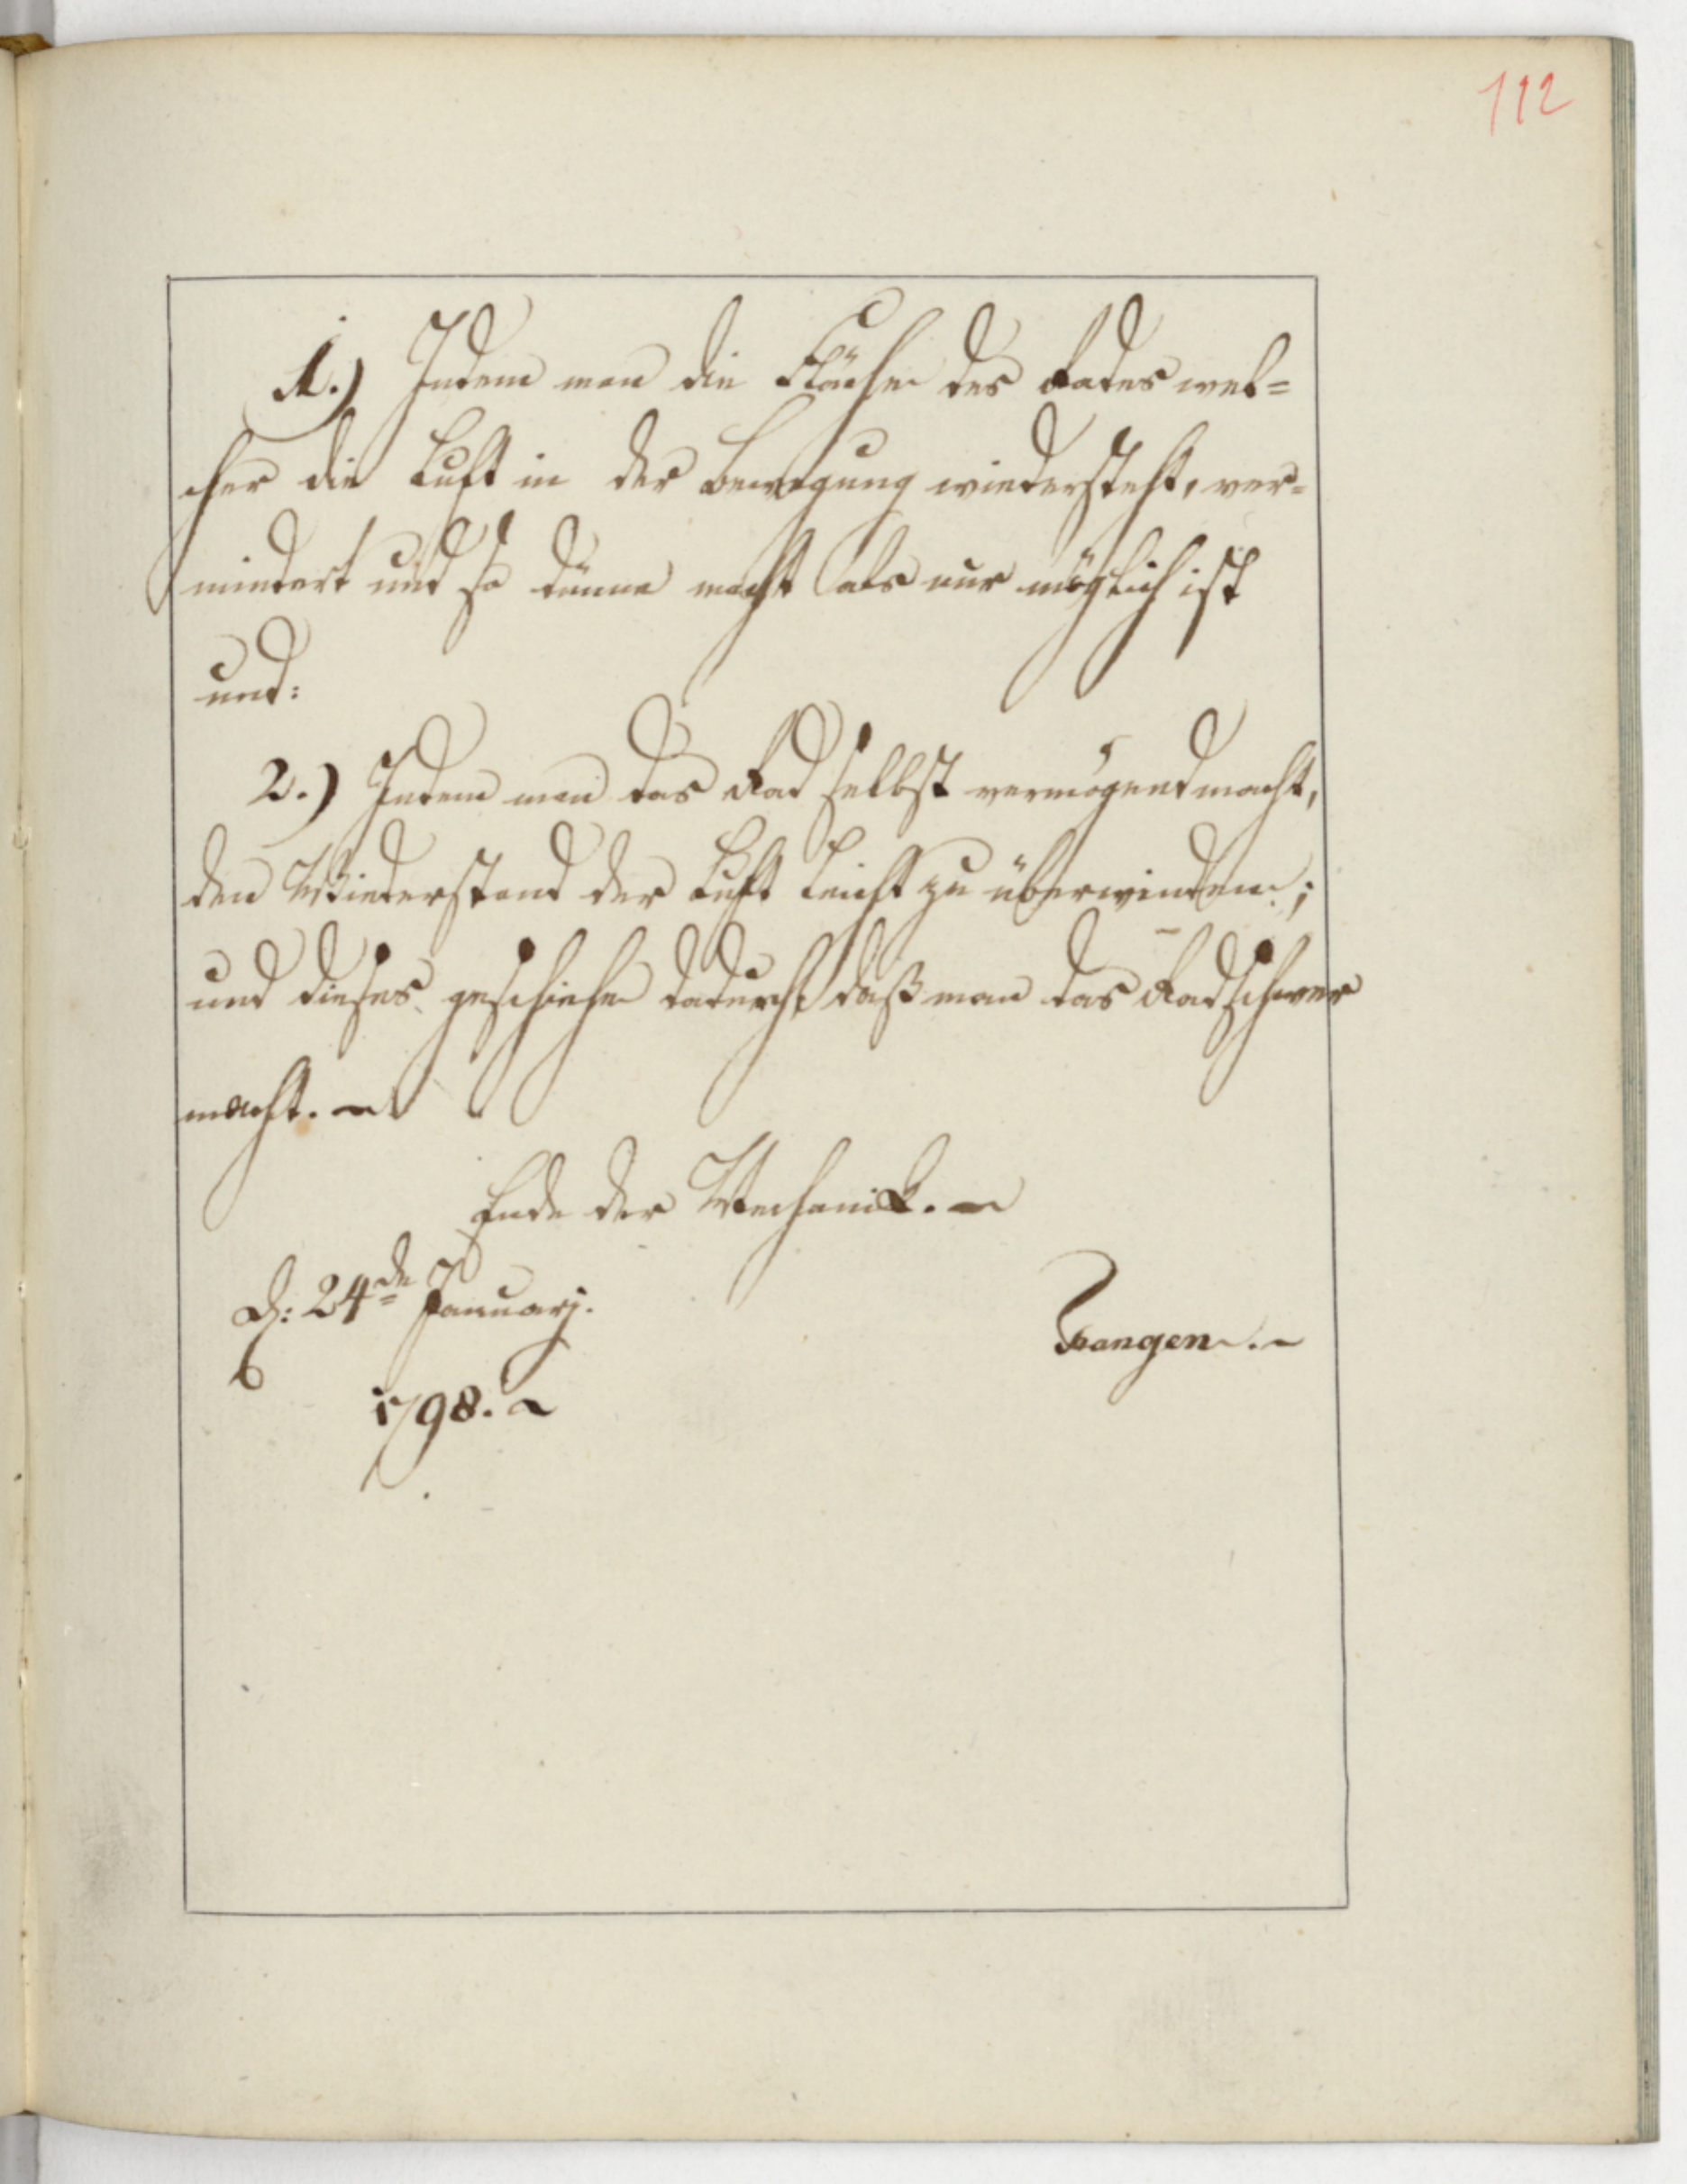 112
1.) Indem man die Fläche des Rades wel=
cher die Luft in der Bewegung wiedersteht, ver=
mindert und so dünne macht als nur möglich ist
und:
2.) Indem man das Rad selbst vermögend macht,
den Wiederstand der Luft leicht zu überwinden;
und dieses geschiehe dadurch daß man das Rad schwer
macht. ~
Ende der Mechanik. ~
D: 24de Januarj.
1798. ~